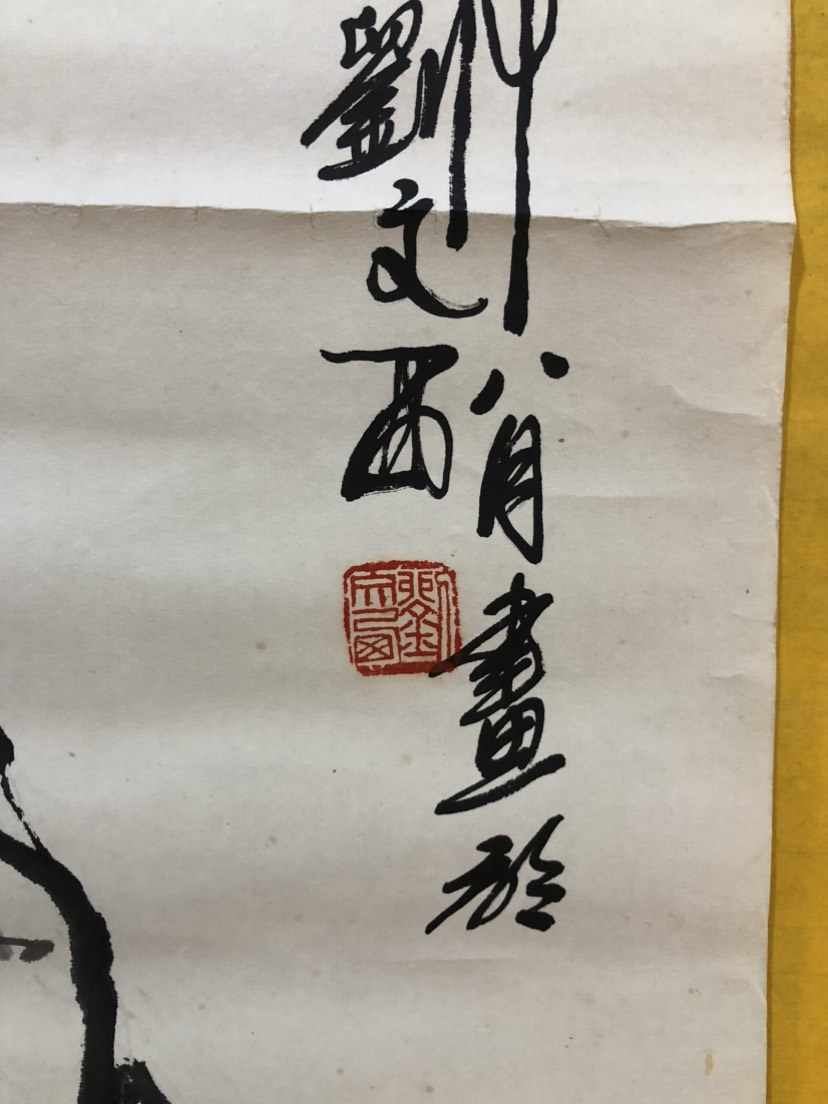 八月畫於
劉文西
劉文西